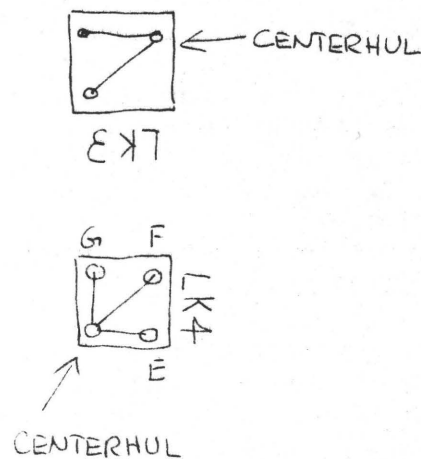 CENTERHUL
LK3
G F
LK4
E
CENTERHUL